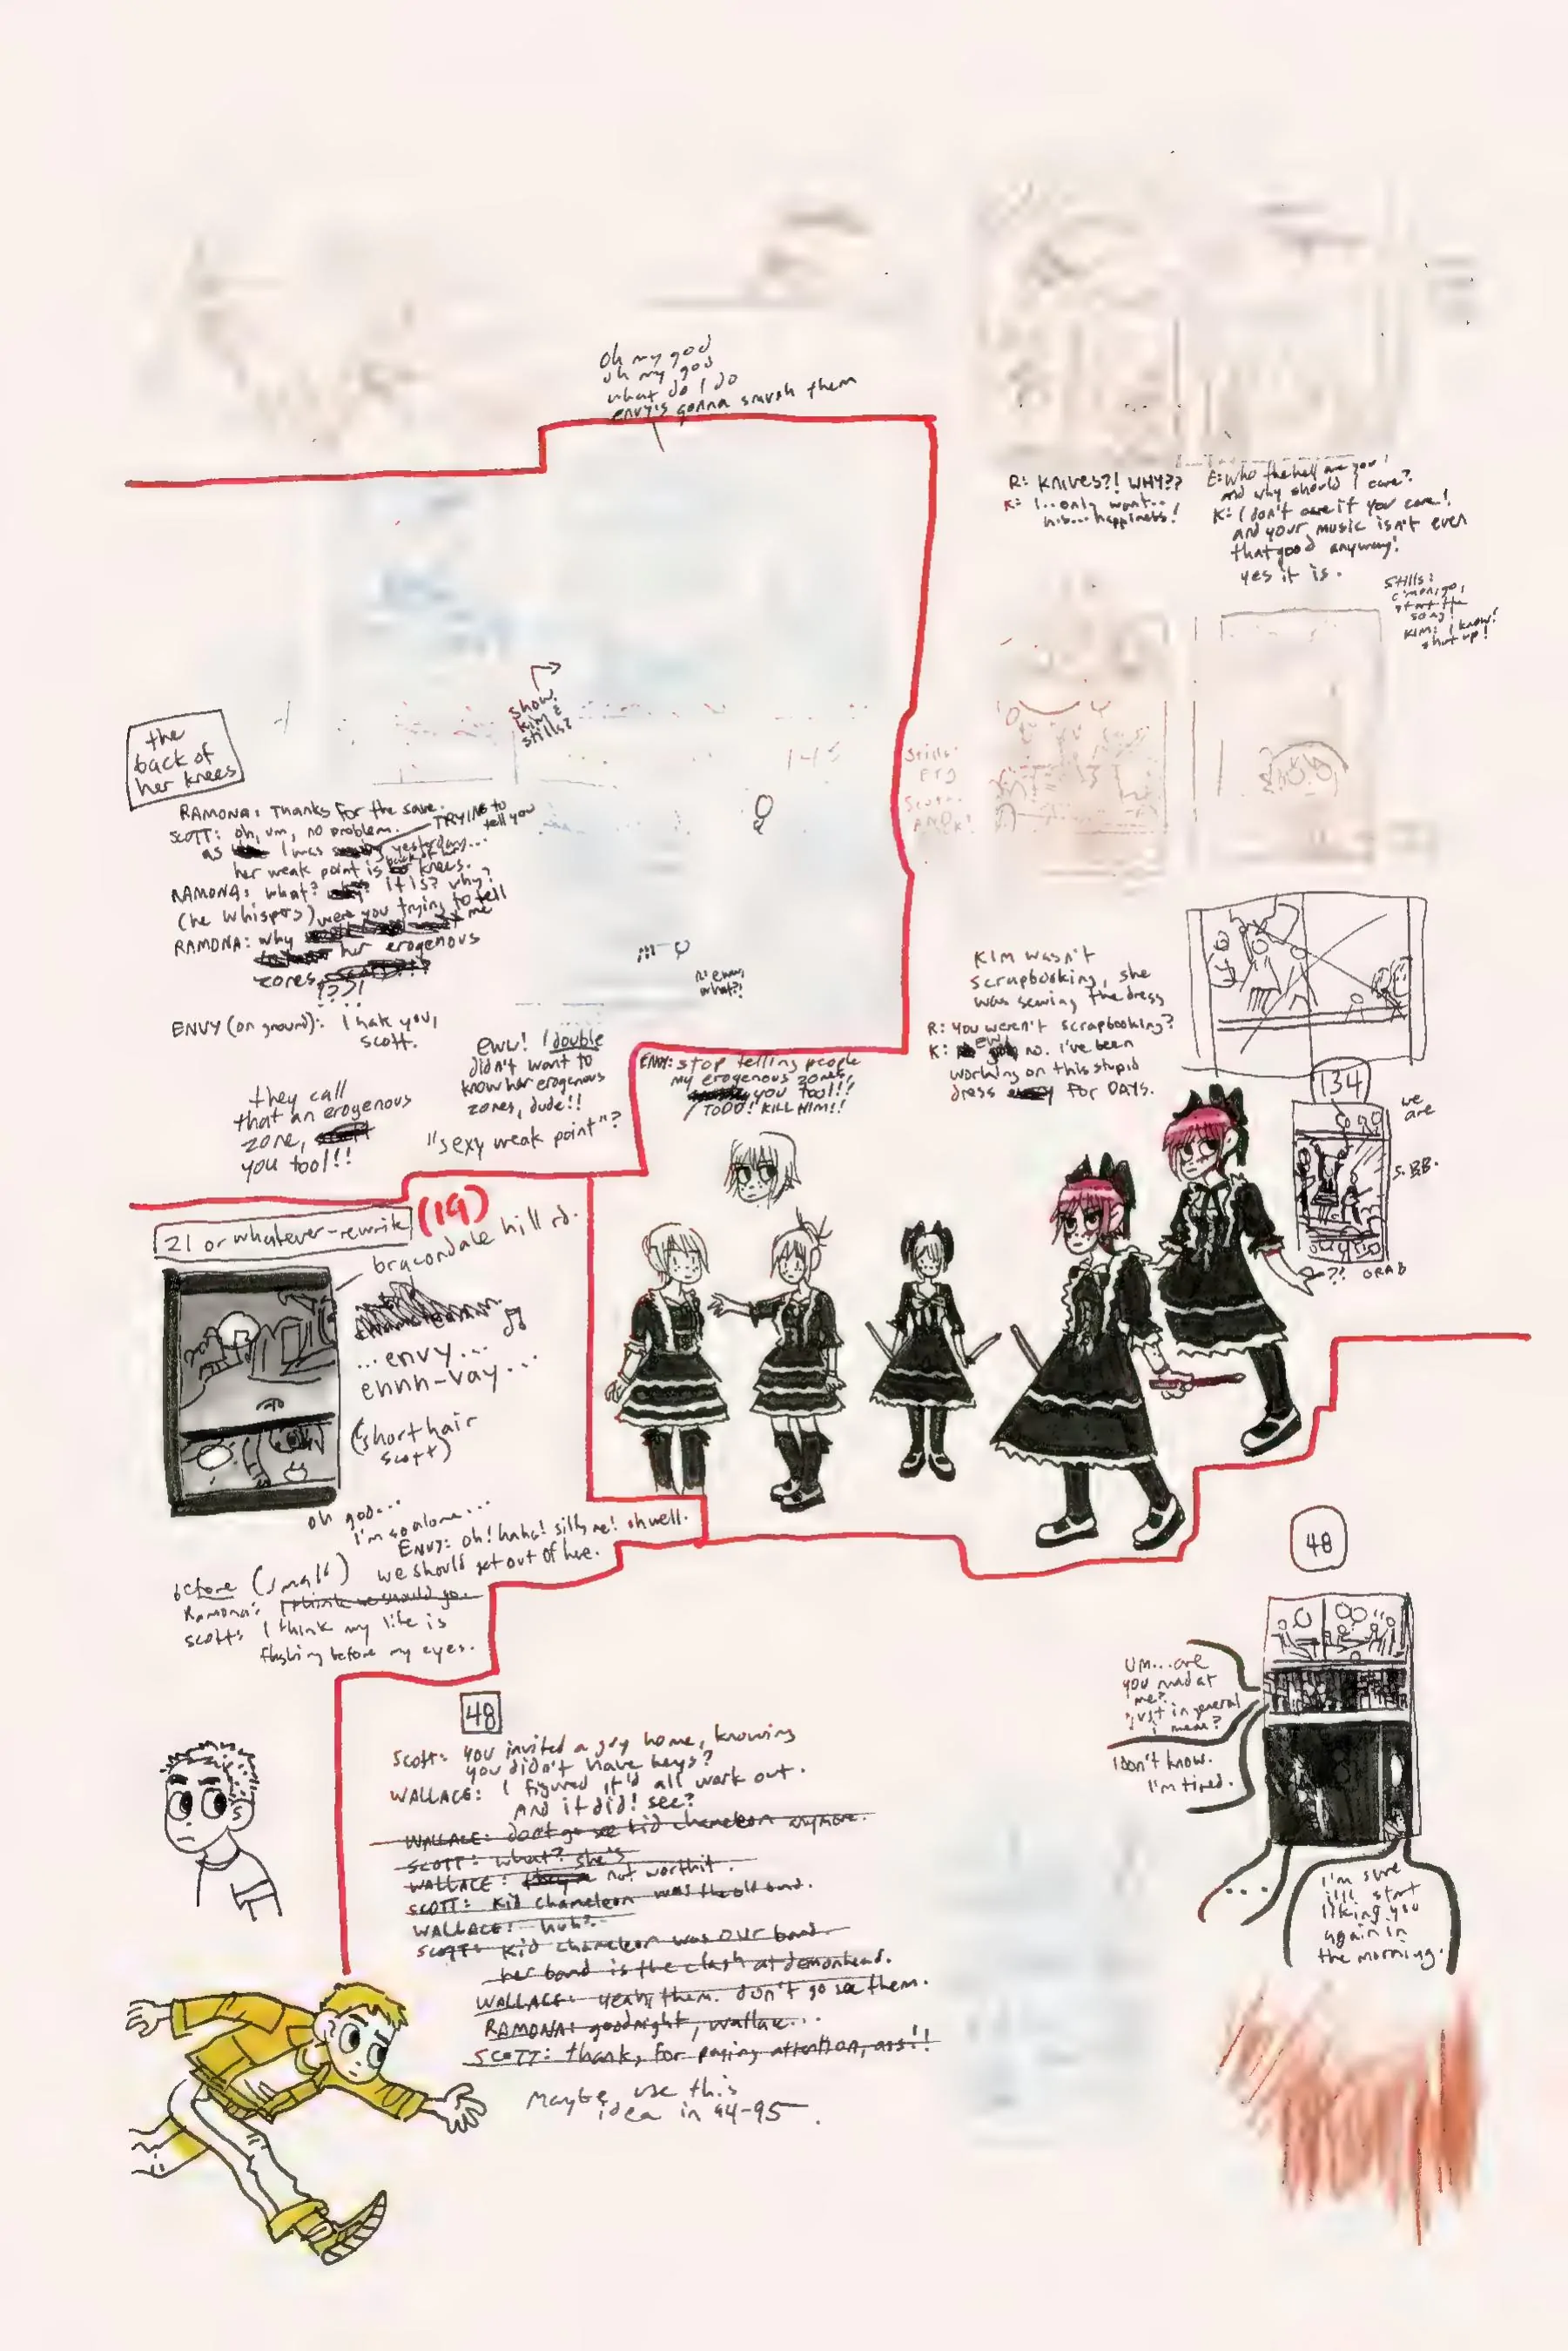 oh my god
oh my god
what do I do
envy's gonna smush them
R: Knives?! WHY??
K: I.. only want..
his... happiness!
E: Who the hell are you!
and why should I care?
K: I don't care if you care!
and your music isn't even
that good anyway!
yes it is.
Stills:
c'mon, go,
start the
song!
KIM: I know!
shut up!
show
kim &
stills?
145
Stills:
Scott..
the
back of
her knees
RAMONA: Thanks for the save.
SCOTT: oh, um, no problem.
TRYING to
tell you
as I was yesterday...
her weak point is back of her knees.
RAMONA: what? it is? why?
(he whispers) were you trying to tell
me
RAMONA: why her erogenous
zones
!??!
ENVY (on ground): I hate you,
Scott.
they call
that an erogenous
zone,
you tool!!!
eww! I double
didn't want to
know her erogenous
zones, dude!!
"sexy weak point"?
R: eww,
what?!
ENVY: stop telling people
my erogenous zones,
you tool!!!
TODD! KILL HIM!!
KIM wasn't
scrapbooking, she
was sewing the dress
R: you weren't scrapbooking?
K: ew no. I've been
working on this stupid
dress for DAYS.
134
we
are
S.BB.
?! GRAB
21 or whatever - rewrite
(19)
bracondale hill rd.
...envy...
ehhh-vay...
(short hair
scott)
oh god...
i'm so alone...
ENVY: oh! haha! silly me! oh well.
we should get out of here.
before (small)
Ramona: I think we should go.
Scott: I think my life is
flashing before my eyes.
48
Scott: you invited a guy home, knowing
you didn't have keys?
WALLACE: I figured it'd all work out.
And it did! see?
WALLACE: don't go see kid chameleon anymore.
SCOTT: what? she's
WALLACE: not worth it.
SCOTT: kid chameleon was the old band.
WALLACE: huh?
SCOTT: kid chameleon was our band.
her band is the clash at demonhead.
WALLACE: yeah, them. don't go see them.
RAMONA: goodnight, wallace...
SCOTT: thanks for paying attention, ass!!
maybe use this
idea in 94-95
48
um...are
you mad at
me?
just in general
i mean?
I don't know.
I'm tired.
...
i'm sure
i'll start
liking you
again in
the morning.